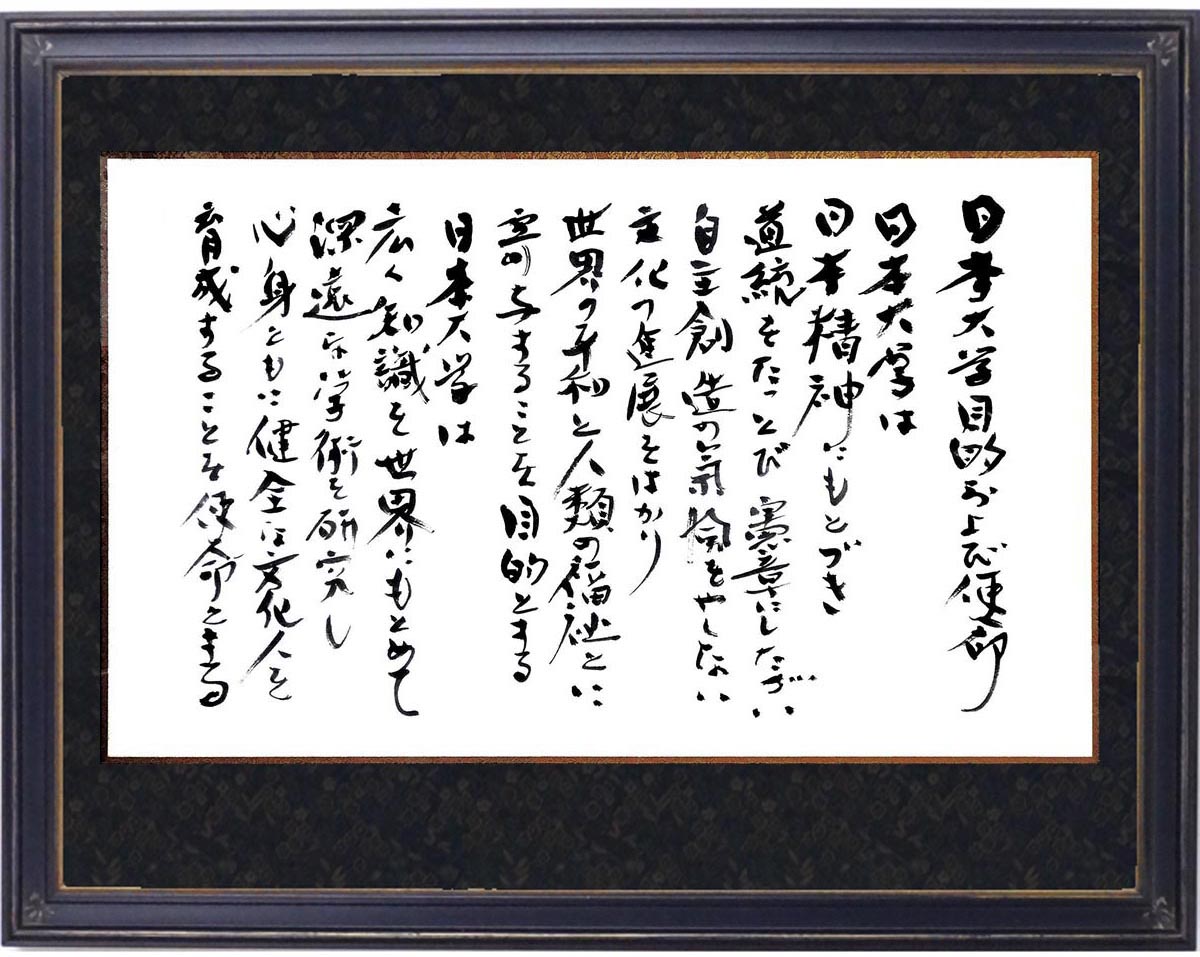 日本大学目的および使命
日本大学は
日本精神にもとづき
道統をたつとび憲章にしたがい
自主創造の気風をやしない
文化の進展をはかり
世界の平和と人類の福祉とに
寄与することを目的とする
日本大学は
広く知識を世界にもとめて
深遠な学術を研究し
心身ともに健全な文化人を
育成することを使命とする